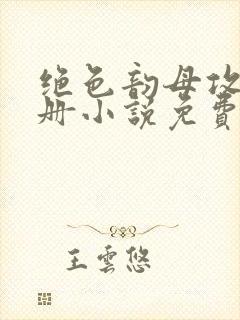 绝色韵母攻
册小说免费
王云悠